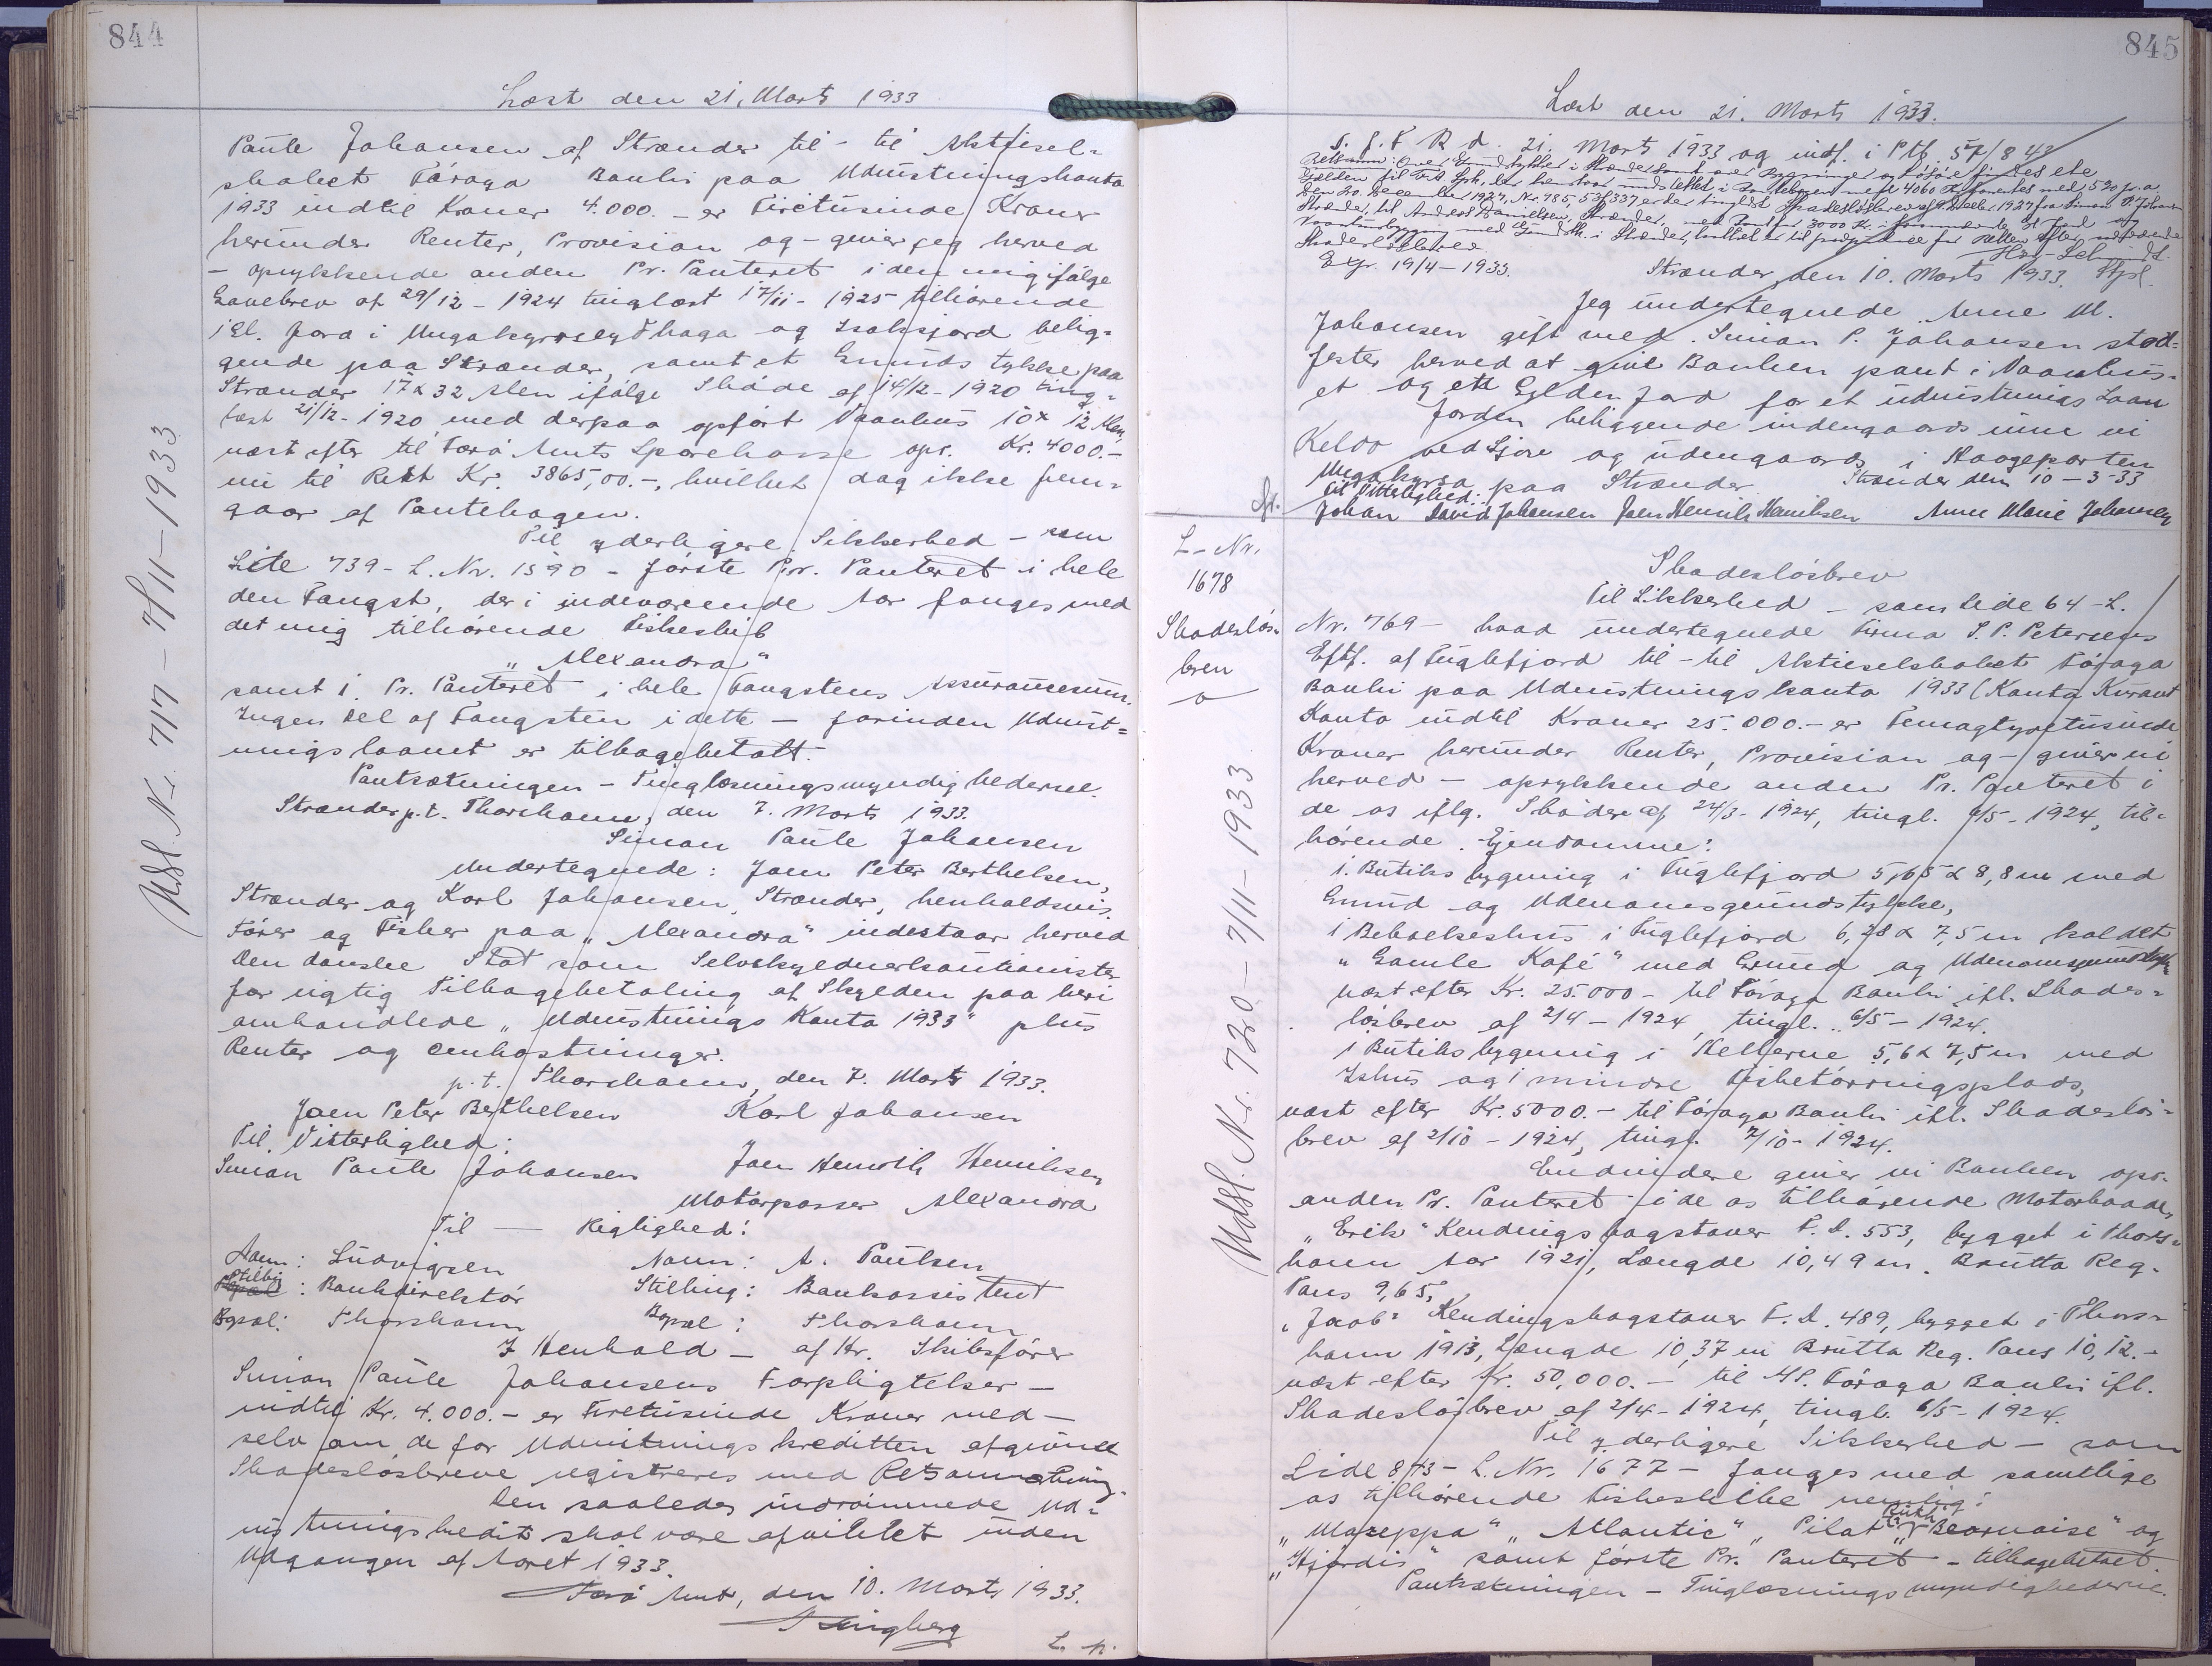 844
Læst den 21. Marts 1933
Paule Johansen af Strænder til - til Aktiesel-
skabet Føroya Banki paa Udrustningskonto
1933 indtil Kroner 4.000.- er Firetusinde Kroner
herunder Renter, Provision og - giver jeg herved
- oprykkende anden Pr. Panteret i den mig ifølge
Gavebrev af 29/12 - 1924 tinglæst 17/11 - 1925 tilhørende
1 Gl. Jord i belig-
gende paa Strænder, samt et Grundstykke paa
Strænder 17 x 32 Alen ifølge Skøde af 14/12 - 1920 ting-
læst 21/12 - 1920 med derpaa opført Vaanhus 10 x 12 Alen,
næst efter til Færø Amts Sparekasse opr. Kr. 4000.-
nu til Rest Kr. 3865,00.-, hvilket dog ikke frem-
gaar af Pantebogen.
Til yderligere Sikkerhed - som
Side 739 - L. Nr. 1590 - første Pr. Panteret i hele
den Fangst, der i indeværende Aar fanges med
det mig tilhørende Fiskeskib
„Alexandra"
samt 1. Pr. Panteret i hele Fangstens Assurancesum.
Ingen Del af Fangsten i dette - forinden Udrust-
ningslaanet er tilbagebetalt.
Pantsætningen - Tinglæsningsmyndighederne.
Strænder p.t. Thorshavn, den 7. Marts 1933.
Simon Paule Johansen
Undertegnede: Joen Peter Berthelsen,
Strænder og Karl Johansen, Strænder, henholdsvis
Fører og Fisker paa „Alexandra" indestaar herved
Den danske Stat som Selvskyldnerkautionister
for rigtig Tilbagebetaling af Skylden paa heri
omhandlede „Udrustnings Konto 1933" plus
Renter og Omkostninger.
p.t. Thorshavn, den 7. Marts 1933.
Joen Peter Berthelsen Karl Johansen
Til Vitterlighed:
Simon Paule Johansen Joen Henrik Henriksen
Motorpasser Alexandra
Til - Rigtighed:
Navn: Ludvigsen Navn: A. Paulsen
Stilling: Bankdirektør Stilling: Bankassistent
Bopæl: Thorshavn Bopæl: Thorshavn
I Henhold - af Hr. Skibsfører
Simon Paule Johansens Forpligtelser -
indtil Kr. 4.000.- er Firetusinde Kroner med -
selv om de for Udrustningskreditten afgivne
Skadesløsbreve registreres med Retsanmærkning.
Den saaledes indrømmede Ud-
rustningskredit skal være afviklet inden
Udgangen af Aaret 1933.
Færø Amt, den 10. Marts 1933.
L. p.
Udsl. Nr. 717 - 7/11 - 1933
845
Læst den 21. Marts 1933.
S. f. F R d. 21. Marts 1933 og indf. i Ptb. 57/843
Skadesløsbrev
Expr. 19/4 - 1933.
Strænder, den 10. Marts 1933.
Jeg undertegnede Anne M.
Johansen gift med Simon P. Johansen stad-
fester herved at give Banken pant i Vaanhus-
et og et Gylden Jord for et udrustnings Laan
Jorden beliggende indengaards inne vi
Keldo ved Sjov og udengaards i Haageparten
paa Strænder Strænder den 10 - 3 - 33
Til Vitterlighed:
Johan David Johansen Joen Henrik Henriksen Anne Marie Johansen
L - Nr.
1678
Skadesløs-
brev
Skadesløsbrev
Til Sikkerhed - som Side 64 - L.
Nr. 769 - hvad undertegnede Firma S. P. Petersens
Eftf. af Fuglefjord til - til Aktieselskabet Føroya
Banki paa Udrustningskonto 1933 (Konto Kurant
Konto indtil Kroner 25.000.- er Femogtyvetusinde
Kroner herunder Renter, Provision og - giver vi
herved - oprykkende anden Pr. Panteret i
de os iflg. Skøder af 24/3 - 1924, tingl. 6/5 - 1924, til-
hørende Ejendomme:
1. Butiksbygning i Fuglefjord 5,65 x 8,8 m med
Grund og Udenomsgrundstykke,
1 Beboelseshus i Fuglefjord 6,28 x 7,5 m kaldet
„Gamle Kafé" med Grund og Udenomsgrundstykke
næst efter Kr. 25.000 - til Føroya Banki ifl. Skades-
løsbrev af 2/4 - 1924, tingl. 6/5 - 1924.
1 Butiksbygning i Kellerne 5,6 x 7,5 m med
Ishus og 1 mindre Fisketørringsplads,
næst efter Kr. 5000.- til Føroya Banki ifl. Skadesløs-
brev af 2/10 - 1924, tingl. 7/10 - 1924.
Endvidere giver vi Banken opr.
anden Pr. Panteret i de os tilhørende Motorbaade,
„Erik" Kendingsbogstaver F. D. 553, bygget i Thors-
havn Aar 1921, Længde 10,49 m. Brutto Reg.
Tons 9,65,
„Jacob" Kendingsbogstaver F. D. 489, bygget i Thors-
havn 1913, Længde 10,37 m Brutto Reg. Tons 10,12.-
næst efter Kr. 50.000.- til A/S. Føroya Banki ifl.
Skadesløsbrev af 2/4 - 1924, tingl. 6/5 - 1924.
Til yderligere Sikkerhed - som
Side 873 - L. Nr. 1677 - fanges med samtlige
os tilhørende Fiskeskibe nemlig:
„Mazeppa" „Atlantic", „Pilot" „Ruth" „Bearnaise" og
„Hjördis" samt første Pr. Panteret - tilbagebetalt
Pantsætningen - Tinglæsningsmyndighederne.
Udsl. Nr. 720 - 7/11 - 1933